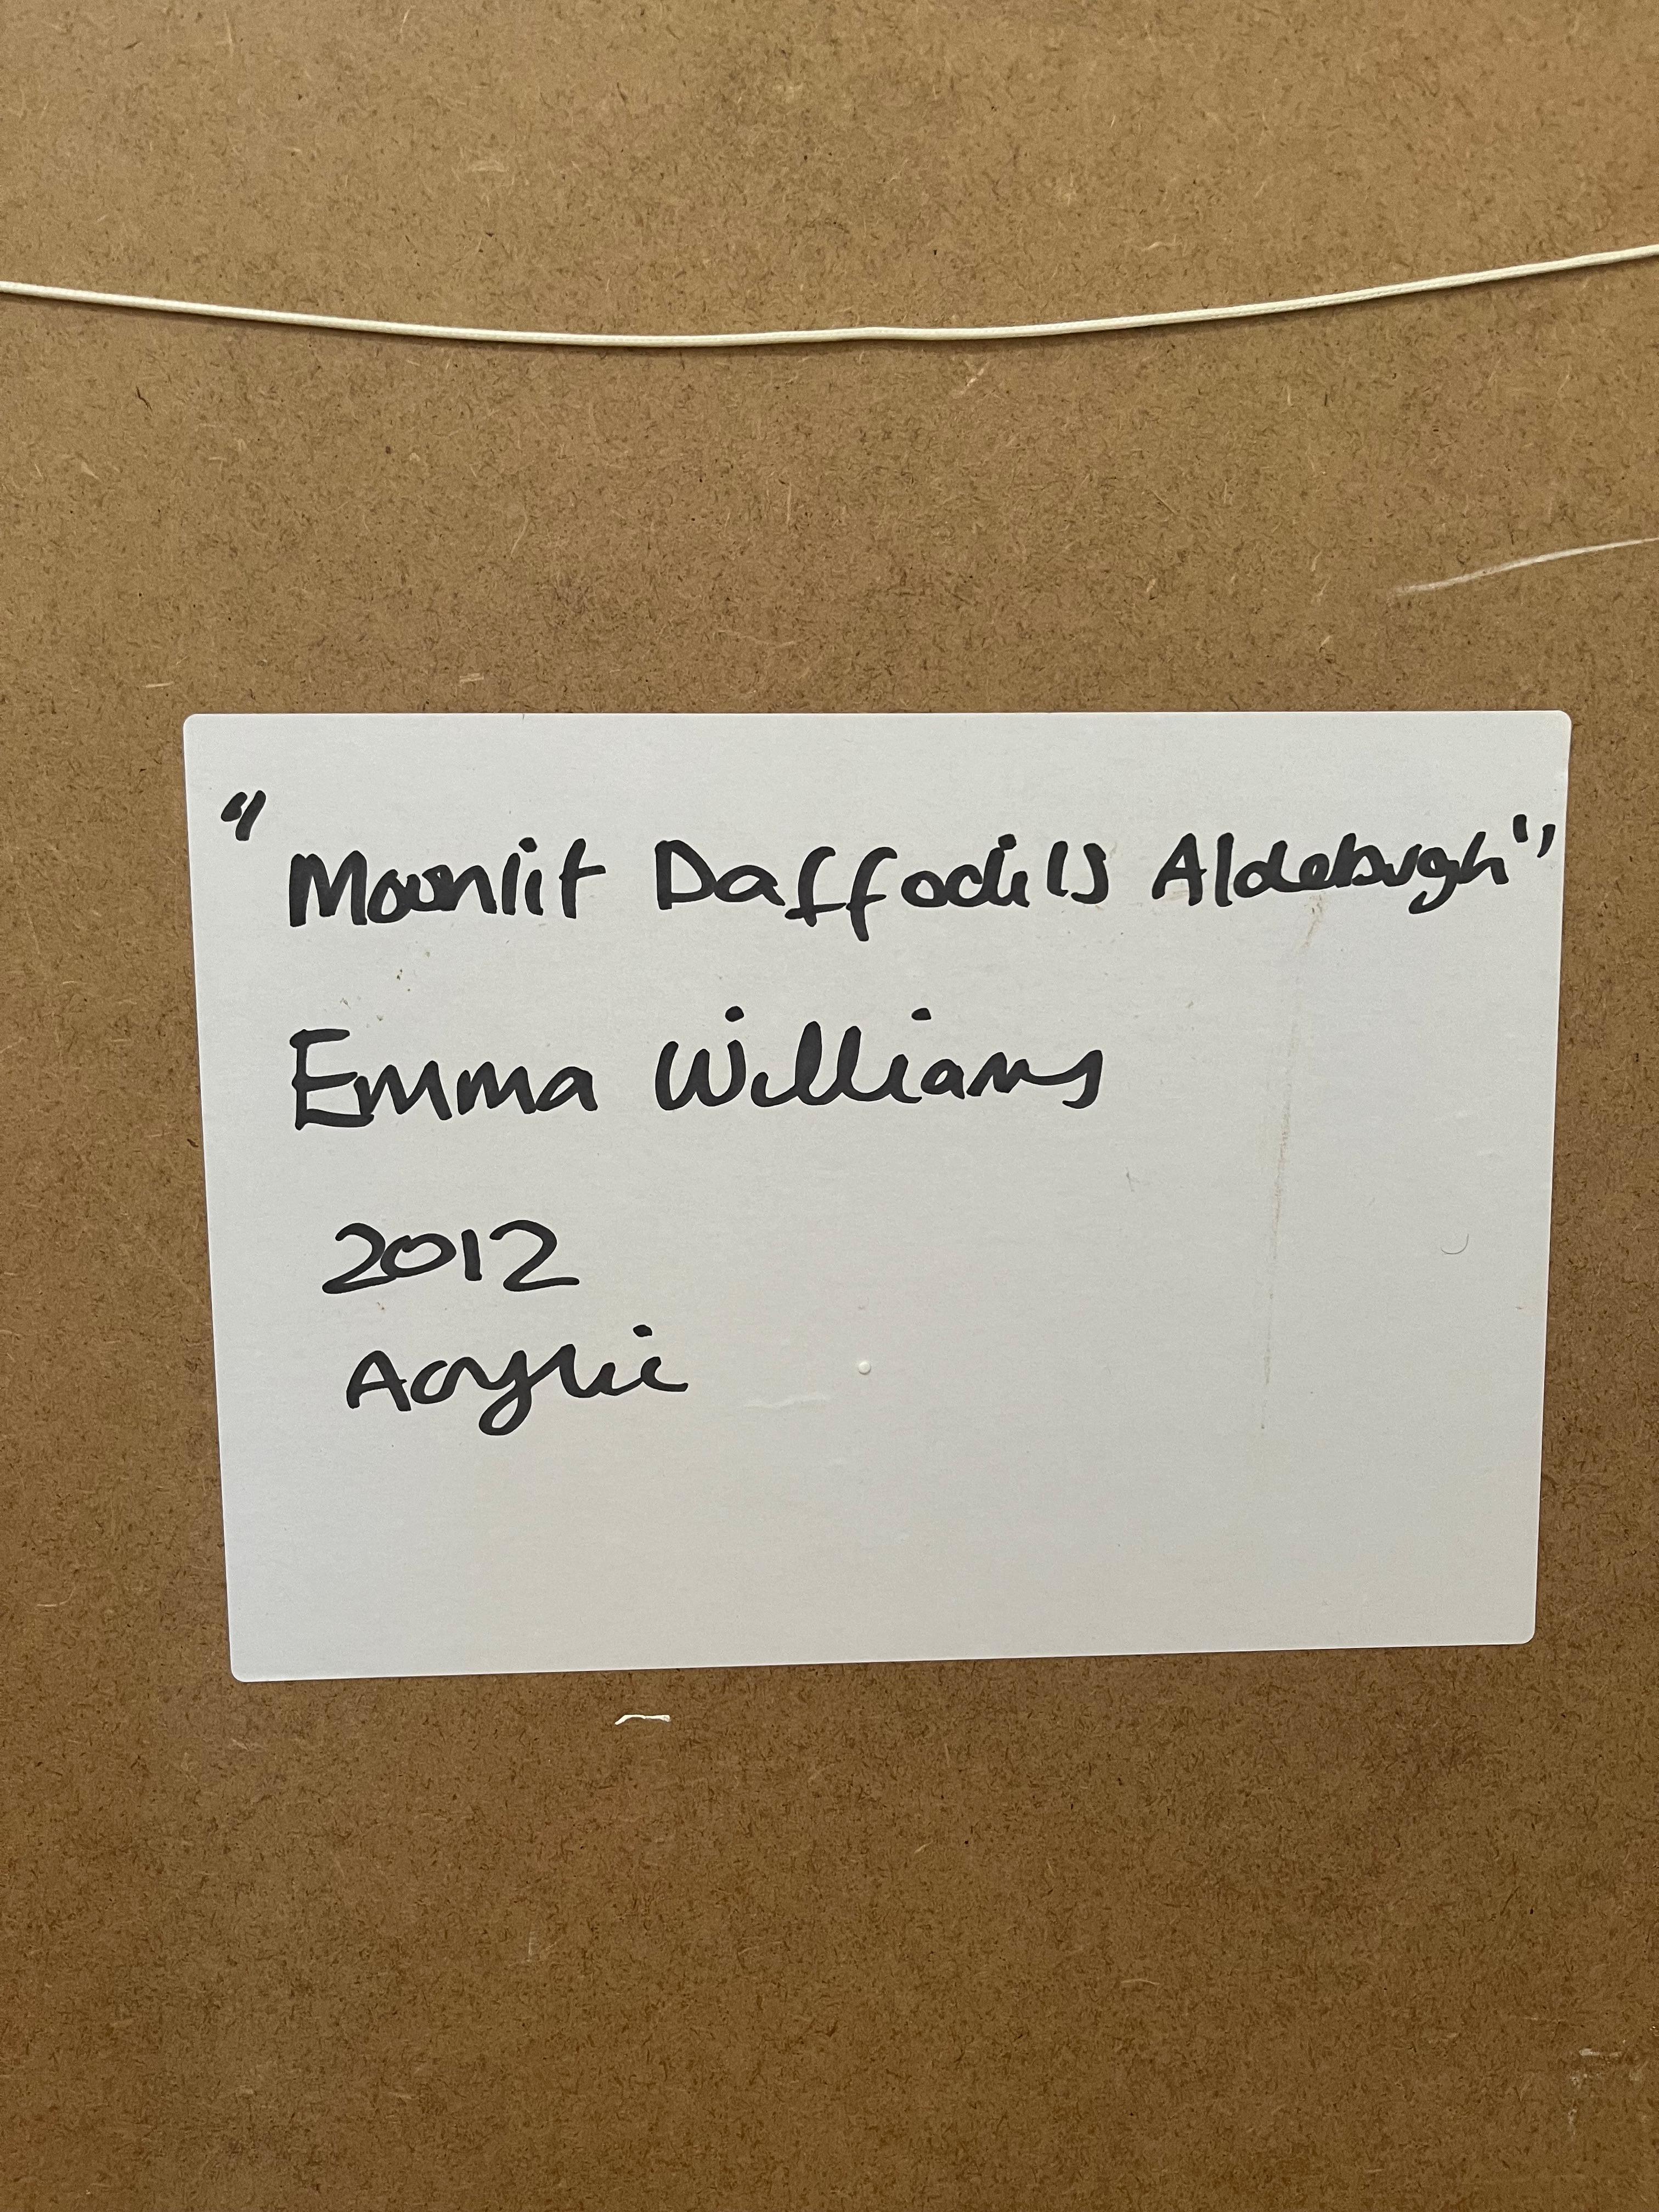 "Moonlit Daffodils Aldeburgh"
Emma Williams
2012
Acrylic